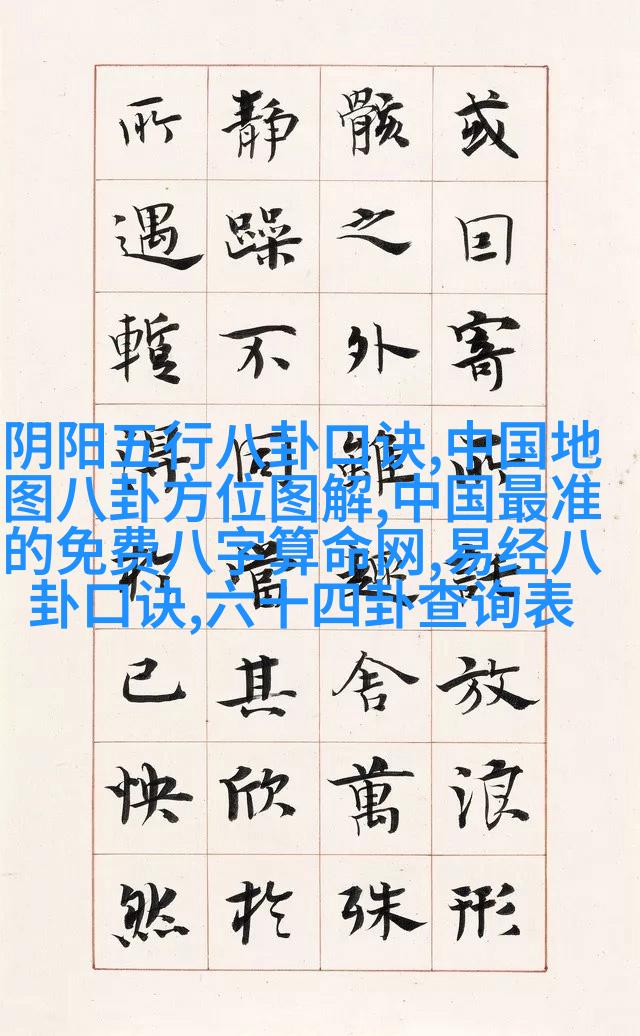 或因寄所託放浪形
骸之外雖趣舍萬殊
靜躁不同當其欣於
所遇暫得於己怏然
阴阳五行八卦口诀,中国地
图八卦方位图解,中国最准
的免费八字算命网,易经八
卦口诀,六十四卦查询表